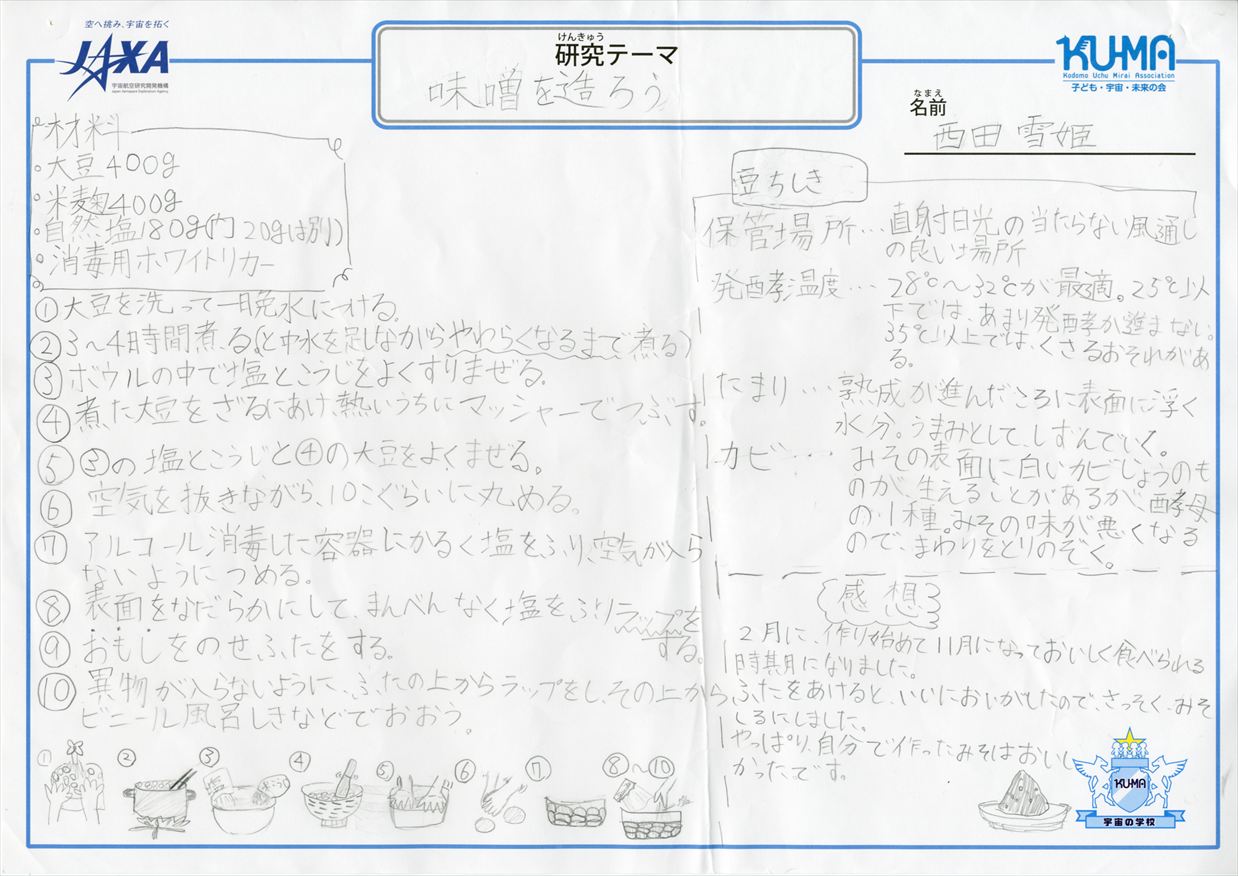 空へ挑み、宇宙を拓く
JAXA
宇宙航空研究開発機構
Japan Aerospace Exploration Agency
けんきゅう
研究テーマ
味噌を造ろう
KU-MA
Kodomo Uchu Mirai Association
子ども・宇宙・未来の会
なまえ
名前
西田 雪姫
材料
・大豆400g
・米麹400g
・自然塩180g(内20gは別)
・消毒用ホワイトリカー
①大豆を洗って一晩水につける。
②3〜4時間煮る(と中水を足しながらやわらくなるまで煮る)
③ボウルの中で塩とこうじをよくすりまぜる。
④煮た大豆をざるにあけ、熱いうちにマッシャーでつぶす。
⑤③の塩とこうじと④の大豆をよくまぜる。
⑥空気を抜きながら、10こぐらいに丸める。
⑦アルコール消毒した容器にかるく塩をふり、空気が入ら
ないようにつめる。
⑧表面をなだらかにして、まんべんなく塩をふりラップを
する。
⑨おもしをのせふたをする。
⑩異物が入らないように、ふたの上からラップをし、その上から
ビニール風呂しきなどでおおう。
① ② ③ ④ ⑤ ⑥ ⑦ ⑧〜⑩
塩 こうじ
豆ちしき
保管場所…直射日光の当たらない風通し
の良いけ場所
発酵温度…28℃〜32℃が最適。25℃以
下では、あまり発酵が進まない。
35℃以上では、くさるおそれがあ
る。
たまり…熟成が進んだころに表面に浮く
水分。うまみとして、しずんでいく。
カビ…みその表面に白いカビじょうのも
のが、生えることがあるが、酵母
の1種。みその味が悪くなる
ので、まわりをとりのぞく。
感想
2月に、作り始めて11月になっておいしく食べられる
時期になりました。
ふたをあけると、いいにおいがしたので、さっそく、みそ
しるにしました。
やっぱり、自分で作ったみそはおいし
かったです。
KU-MA
宇宙の学校